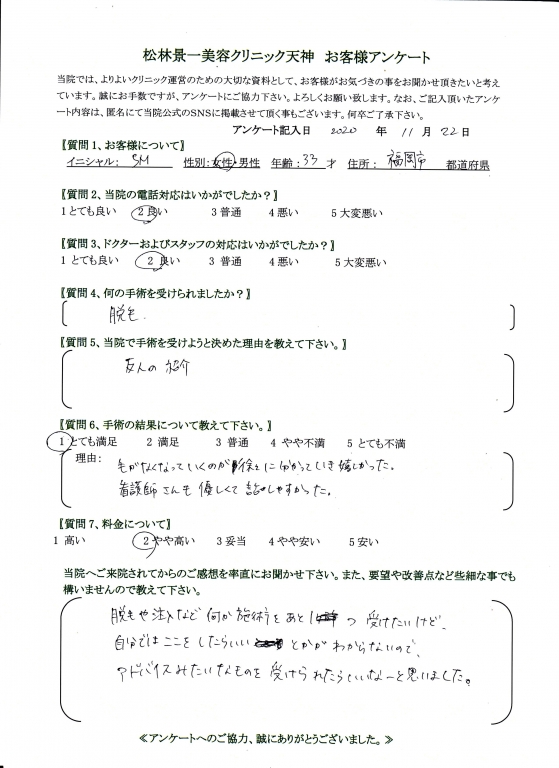 松林景一美容クリニック天神　お客様アンケート
当院では、よりよいクリニック運営のための大切な資料として、お客様がお気づきの事をお聞かせ頂きたいと考え
ています。誠にお手数ですが、アンケートにご協力下さい。よろしくお願い致します。なお、ご記入頂いたアンケ
ート内容は、匿名にて当院公式のSNSに掲載させて頂く事もございます。何卒ご了承下さい。
アンケート記入日　2020　年　11月　22日
〖質問1、お客様について〗
イニシャル：　SM　性別：女性・男性　年齢：33才　住所：　福岡市　都道府県
〖質問2、当院の電話対応はいかがでしたか？〗
1とても良い　2良い　3普通　4悪い　5大変悪い
〖質問3、ドクターおよびスタッフの対応はいかがでしたか？〗
1 とても良い　2 良い　3 普通　4 悪い　5 大変悪い
〖質問4、何の手術を受けられましたか？〗
脱毛.
〖質問5、当院で手術を受けようと決めた理由を教えて下さい。〗
友人の紹介
〖質問6、手術の結果について教えて下さい。〗
1 とても満足　2 満足　3 普通　4 やや不満　5 とても不満
理由：　毛がなくなっていくのが徐々に分かっていき嬉しかった。
看護師さんも優しくて話しやすかった。
〖質問7、料金について〗
1 高い　2やや高い　3妥当　4やや安い　5安い
当院へご来院されてからのご感想を率直にお聞かせ下さい。また、要望や改善点など些細な事でも
構いませんので教えて下さい。
脱毛や注入など何か施術をあと1つ受けたいけど、
自分ではここをしたらいいとかがわからないので、
アドバイスみたいなものを受けられたらいいなーと思いました。
≪アンケートへのご協力、誠にありがとうございました。≫